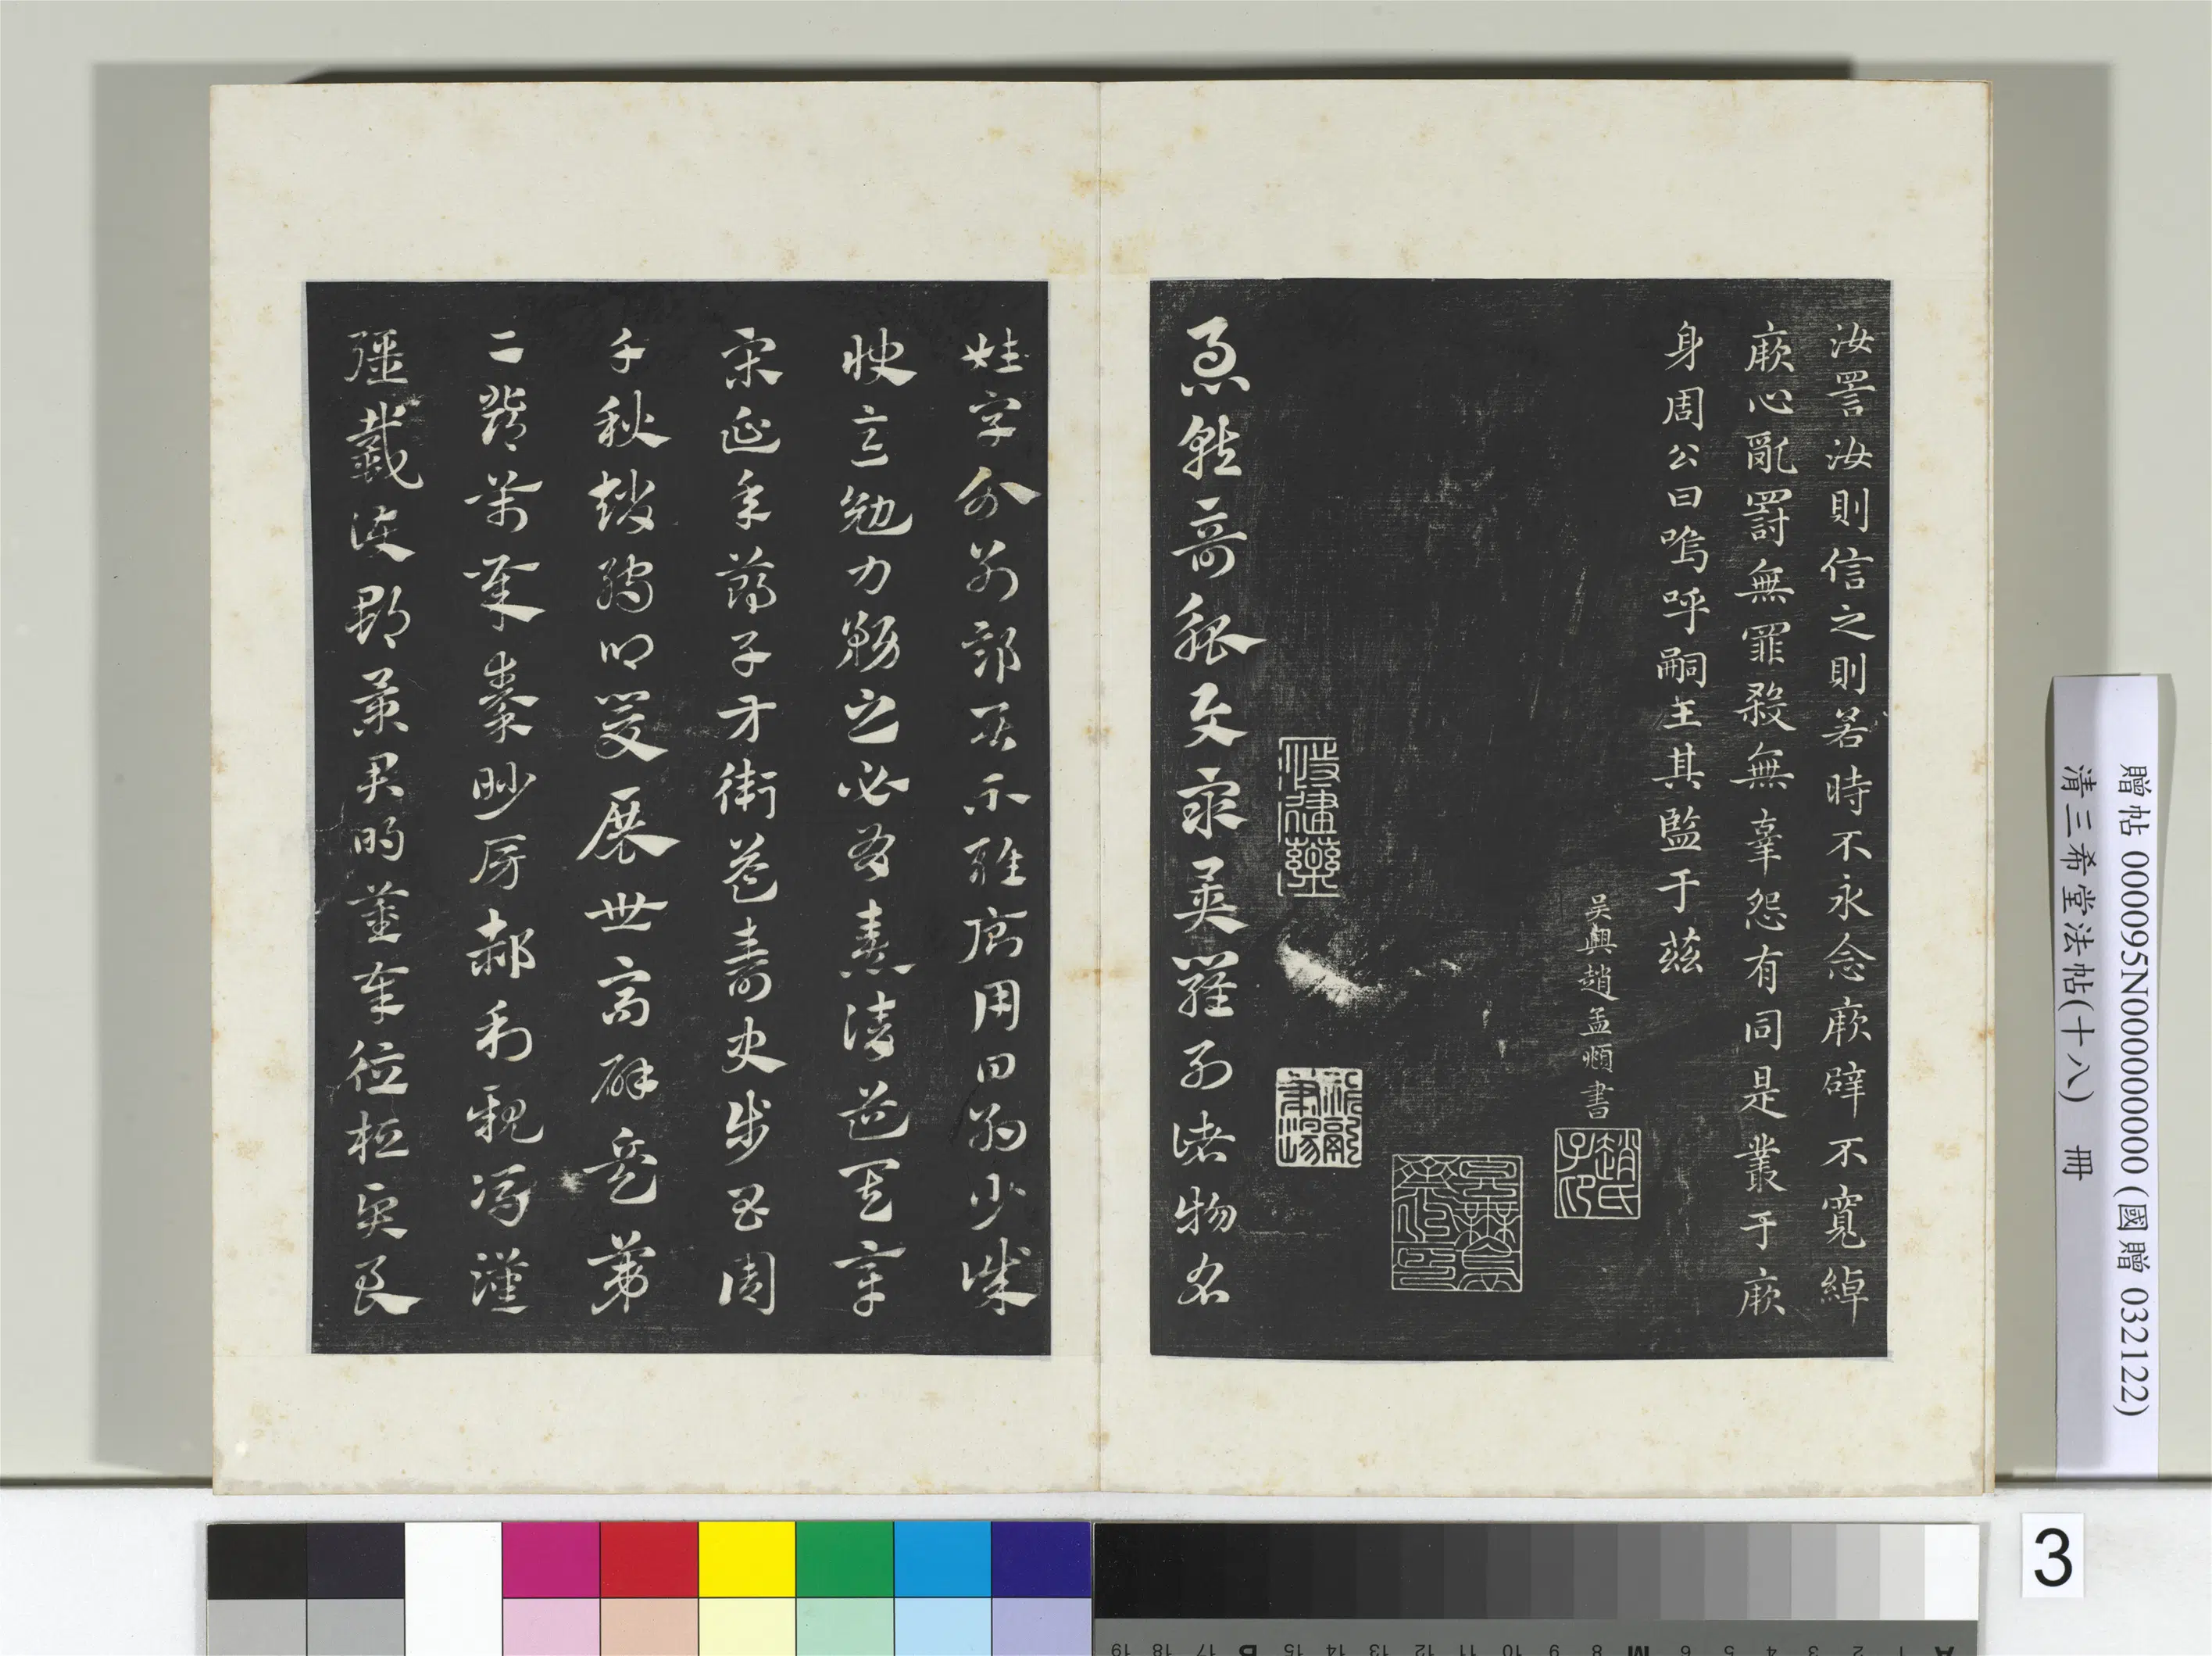 汝詈汝則信之則若時不永念厥辟不寬綽
厥心亂罰無罪殺無辜怨有同是叢于厥
身周公曰嗚呼嗣王其監于茲
吳興趙孟頫書
趙氏子印
急就奇觚與衆異羅列諸物名
姓字分別部居不雜廁用日約少誠
快意勉力務之必有憙請道其章
宋延年鄭子方衛益壽史步昌周
千秋趙孺卿爰展世高辟兵第
二鄧萬歲秦眇房郝利親馮漢
彊戴護郡景君明董奉德桓賢良
贈帖 000095N000000000 (國贈 032122)
清三希堂法帖(十八) 冊
3
A 1 2 3 4 5 6 M 8 9 10 11 12 13 14 15 B 17 18 19